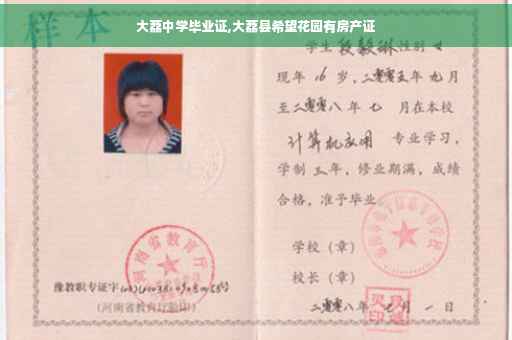 大磊中学毕业证,大磊县希望花园有房产证
样本
学生段毅琳性别女
现年16岁,二零零五年九月
至二零零八年七月在本校
计算机应用 专业学习,
学制三年,修业期满,成绩
合格,准予毕业
学校(章)
校长(章)
二零零八年 月一日
河南省教育厅
豫教职专证字
(河南省教育厅验印)